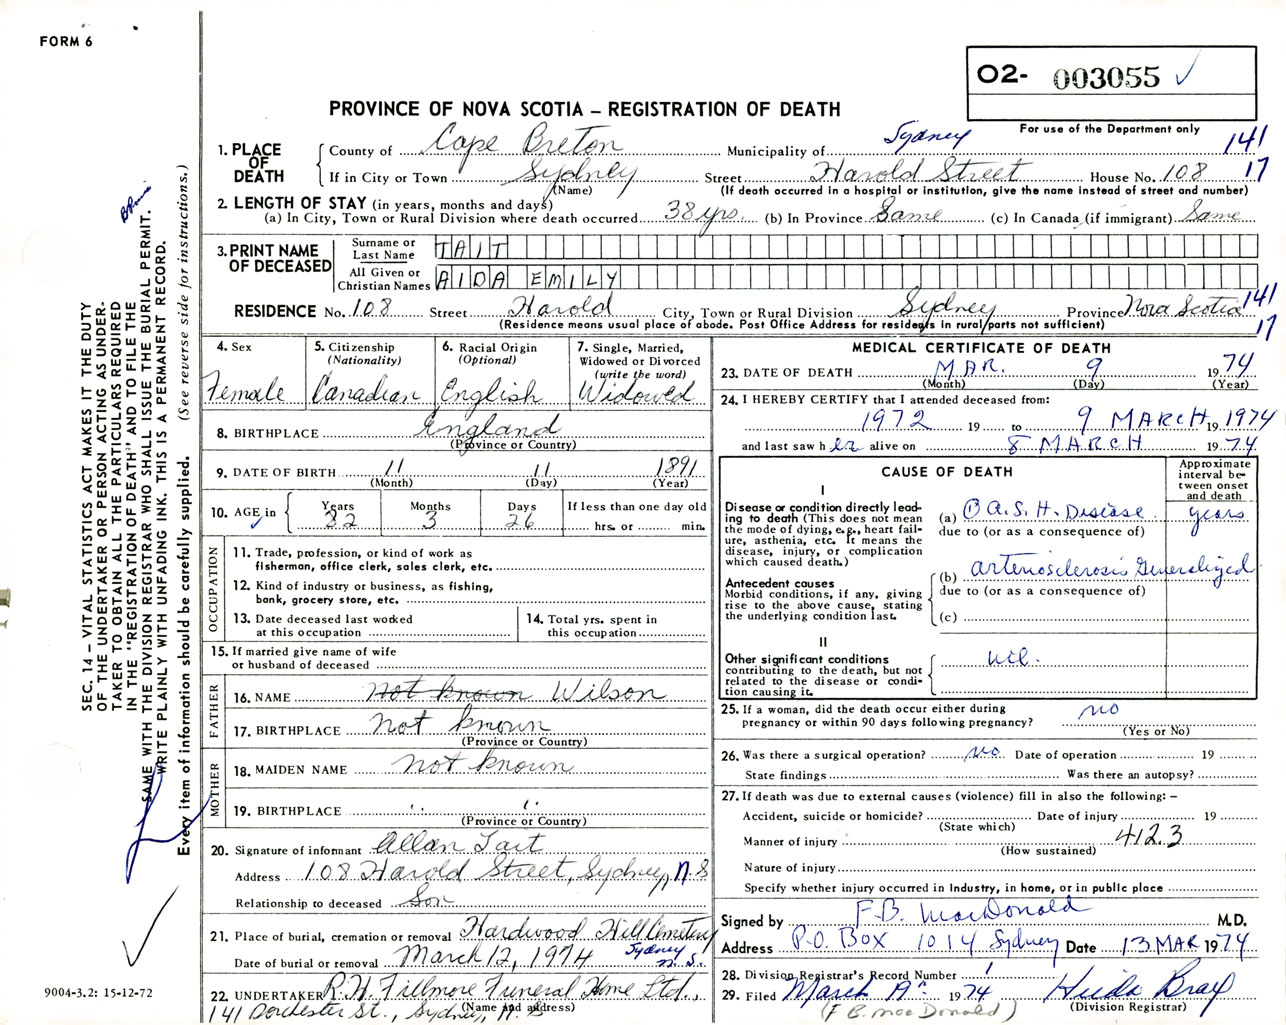 FORM 6
O2- 003055
For use of the Department only
PROVINCE OF NOVA SCOTIA – REGISTRATION OF DEATH
1. PLACE OF DEATH
County of Cape Breton Municipality of Sydney 141
If in City or Town Sydney Street Harold Street House No. 108 17
(Name) (If death occurred in a hospital or institution, give the name instead of street and number)
2. LENGTH OF STAY (in years, months and days)
(a) In City, Town or Rural Division where death occurred 38 yrs. (b) In Province Same (c) In Canada (if immigrant) Same
3. PRINT NAME OF DECEASED
Surname or Last Name TAIT
All Given or Christian Names AIDA EMILY
RESIDENCE No. 108 Street Harold City, Town or Rural Division Sydney Province Nova Scotia 141
(Residence means usual place of abode. Post Office Address for residents in rural parts not sufficient) 17
4. Sex
Female
5. Citizenship
(Nationality)
Canadian
6. Racial Origin
(Optional)
English
7. Single, Married,
Widowed or Divorced
(write the word)
Widowed
8. BIRTHPLACE England
(Province or Country)
9. DATE OF BIRTH 11 11 1891
(Month) (Day) (Year)
10. AGE in
Years Months Days If less than one day old
82 3 26 hrs. or min.
OCCUPATION
11. Trade, profession, or kind of work as
fisherman, office clerk, sales clerk, etc.
12. Kind of industry or business, as fishing,
bank, grocery store, etc.
13. Date deceased last worked
at this occupation
14. Total yrs. spent in
this occupation
15. If married give name of wife
or husband of deceased
FATHER
16. NAME Not known Wilson
17. BIRTHPLACE Not known
(Province or Country)
MOTHER
18. MAIDEN NAME not known
19. BIRTHPLACE " "
(Province or Country)
20. Signature of informant Allan Tait
Address 108 Harold Street, Sydney, N.S
Relationship to deceased Son
21. Place of burial, cremation or removal Hardwood Hill Cemetery
Sydney N.S.
Date of burial or removal March 12, 1974
22. UNDERTAKER R.H. Fillmore Funeral Home Ltd.,
(Name and address)
141 Dorchester St., Sydney, N.S
MEDICAL CERTIFICATE OF DEATH
23. DATE OF DEATH MAR. 9 1974
(Month) (Day) (Year)
24. I HEREBY CERTIFY that I attended deceased from:
1972 19 to 9 MARCH, 19 1974
and last saw h er alive on 8 MARCH 1974
CAUSE OF DEATH
Approximate
interval be-
tween onset
and death
I
Disease or condition directly lead-
ing to death (This does not mean
the mode of dying, e.g., heart fail-
ure, asthenia, etc. It means the
disease, injury, or complication
which caused death.)
(a) ① A.S.H. Disease years
due to (or as a consequence of)
Antecedent causes
Morbid conditions, if any, giving
rise to the above cause, stating
the underlying condition last.
(b) arteriosclerosis Generalized
due to (or as a consequence of)
(c)
II
Other significant conditions
contributing to the death, but not
related to the disease or condi-
tion causing it.
nil.
25. If a woman, did the death occur either during
pregnancy or within 90 days following pregnancy? no
(Yes or No)
26. Was there a surgical operation? no Date of operation 19
State findings Was there an autopsy?
27. If death was due to external causes (violence) fill in also the following: –
Accident, suicide or homicide? Date of injury 19
(State which)
Manner of injury 412.3
(How sustained)
Nature of injury
Specify whether injury occurred in Industry, in home, or in public place
Signed by F.B. MacDonald M.D.
Address P.O. BOX 1014 Sydney Date 13 MAR 1974
28. Division Registrar's Record Number 1
29. Filed March 19 1974 Hilda Bray
(F B. MacDonald) (Division Registrar)
SEC. 14 – VITAL STATISTICS ACT MAKES IT THE DUTY
OF THE UNDERTAKER OR PERSON ACTING AS UNDER-
TAKER TO OBTAIN ALL THE PARTICULARS REQUIRED
IN THE "REGISTRATION OF DEATH" AND TO FILE THE
SAME WITH THE DIVISION REGISTRAR WHO SHALL ISSUE THE BURIAL PERMIT.
WRITE PLAINLY WITH UNFADING INK. THIS IS A PERMANENT RECORD.
Every item of information should be carefully supplied. (See reverse side for instructions.)
9004-3.2: 15-12-72